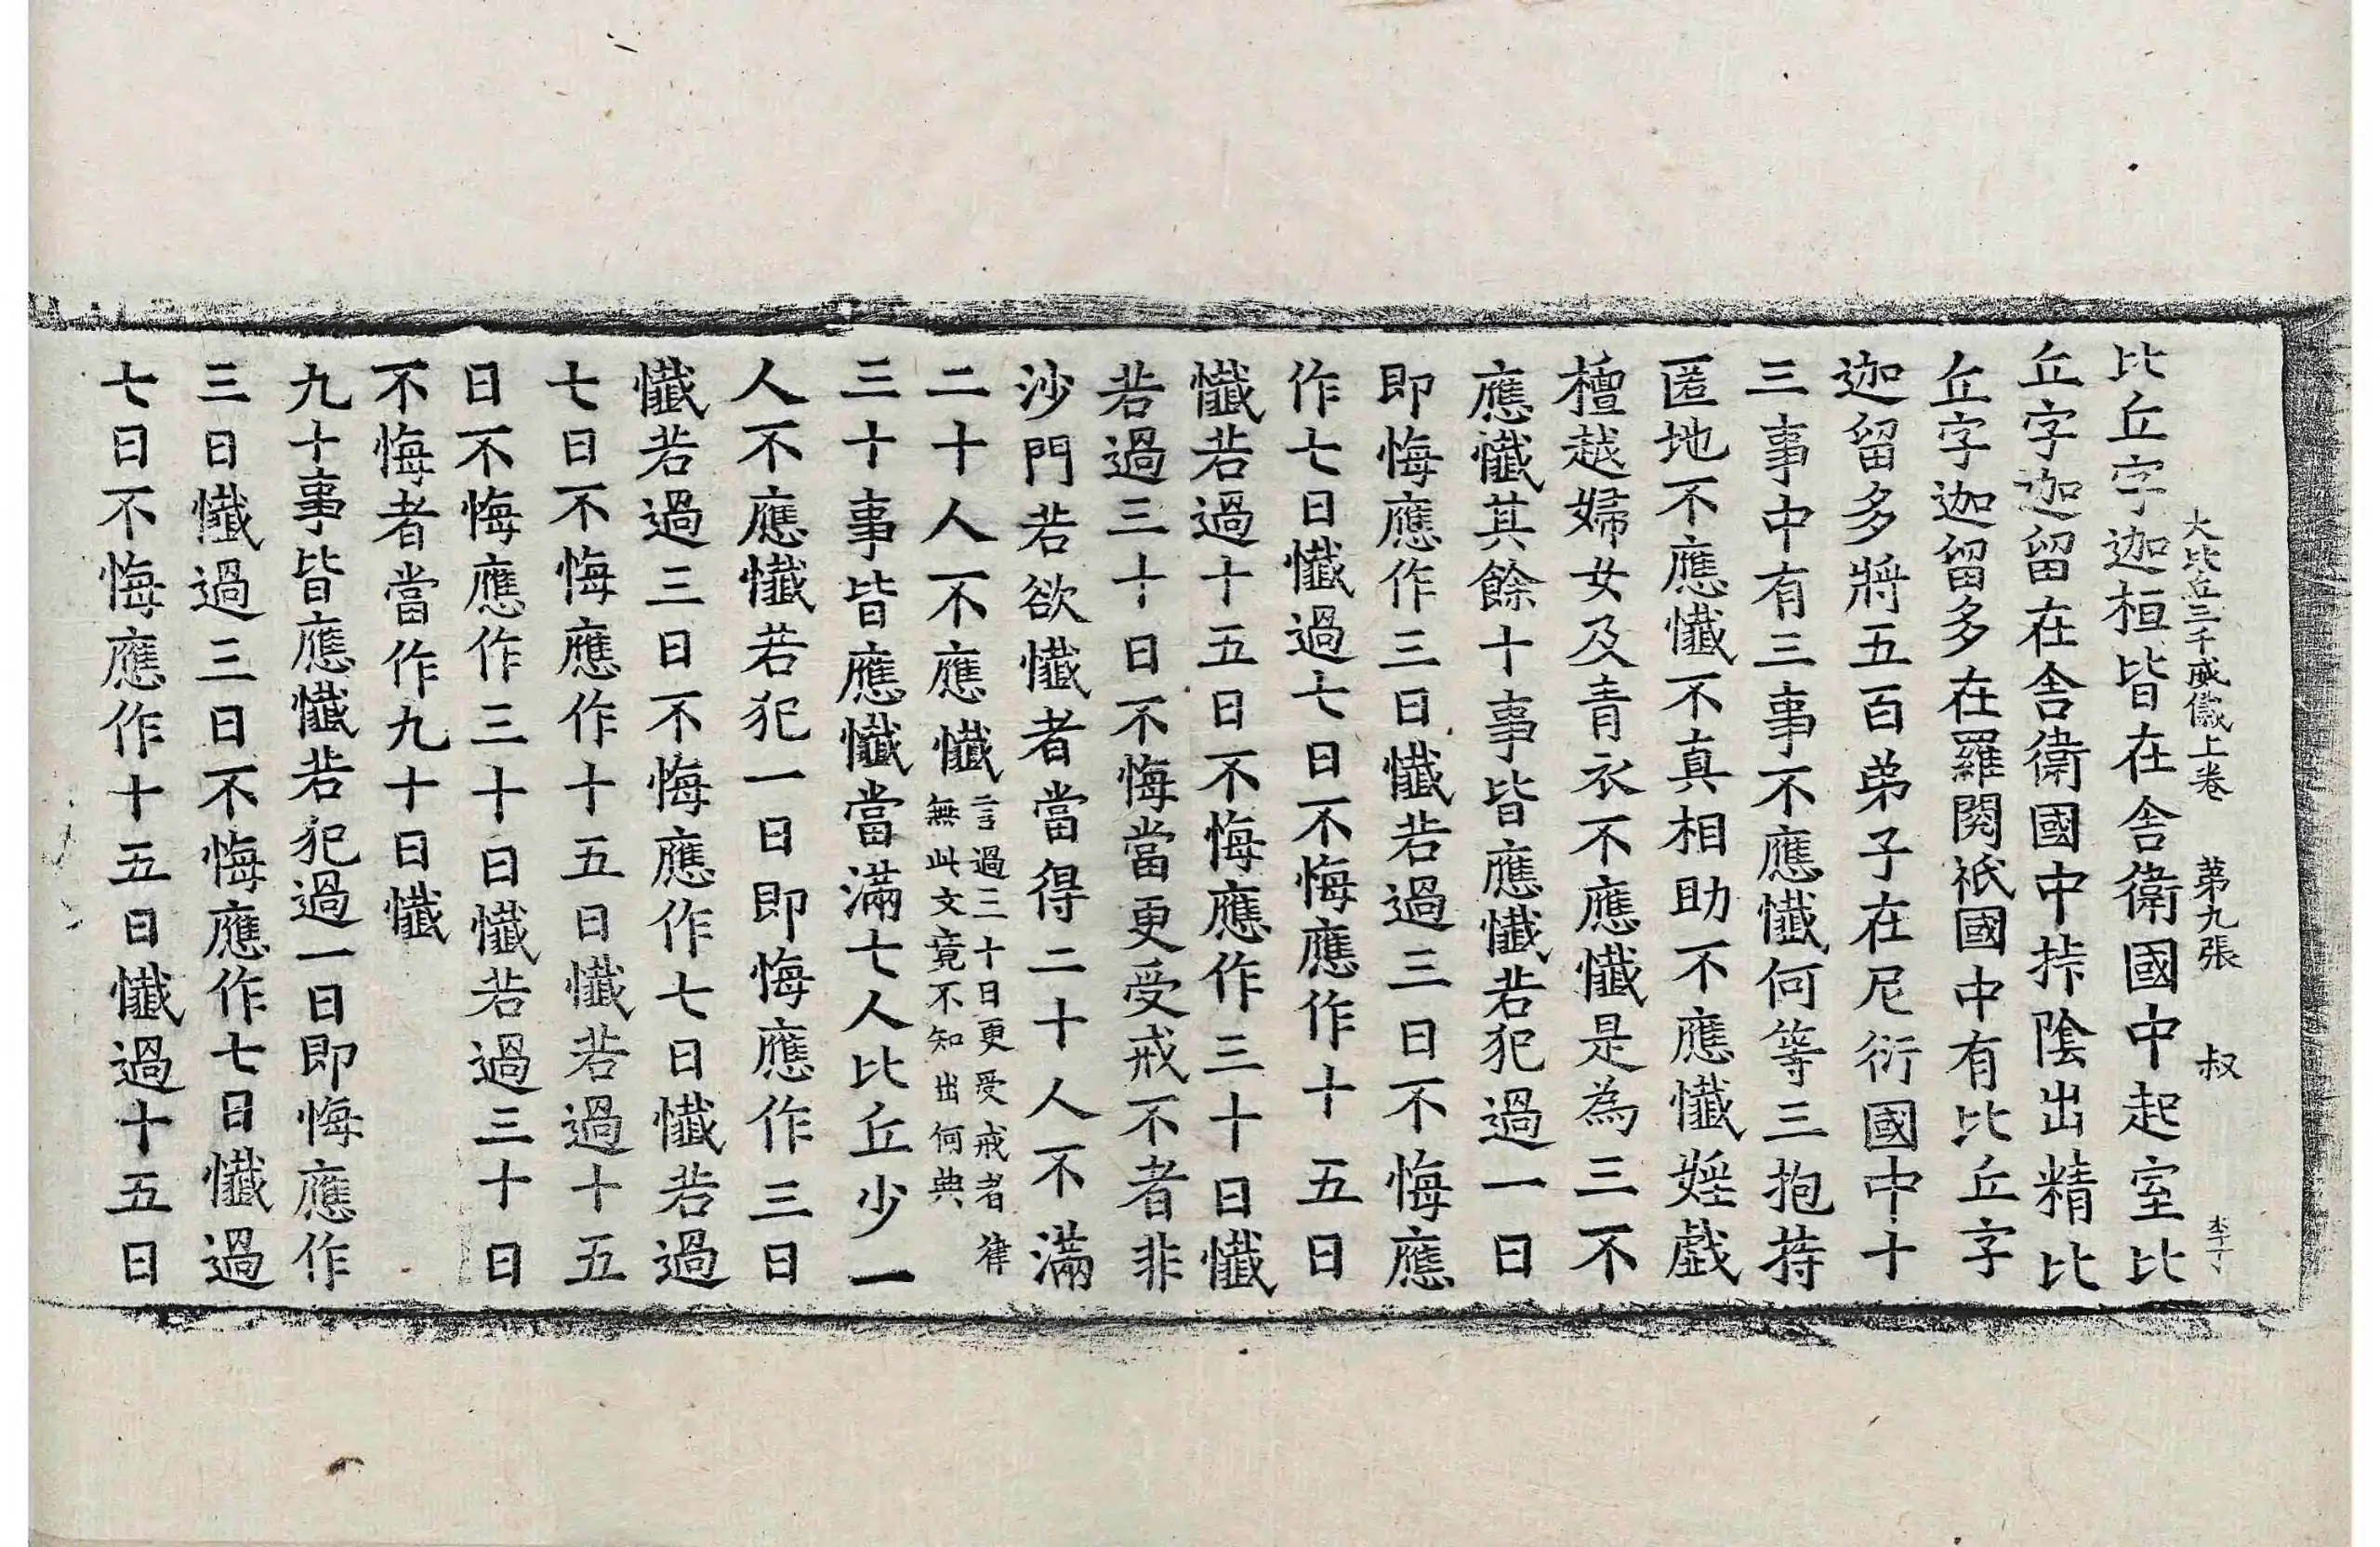 大比丘三千威儀上卷 第九張 叔 李丁
比丘字迦桓皆在舍衛國中起室比
丘字迦留在舍衛國中捽陰出精比
丘字迦留多在羅閱祇國中有比丘字
迦留多將五百弟子在尼衍國中十
三事中有三事不應懺何等三抱持
匿地不應懺不真相助不應懺婬戲
檀越婦女及青衣不應懺是為三不
應懺其餘十事皆應懺若犯過一日
即悔應作三日懺若過三日不悔應
作七日懺過七日不悔應作十五日
懺若過十五日不悔應作三十日懺
若過三十日不悔當更受戒不者非
沙門若欲懺者當得二十人不滿
二十人不應懺
言過三十日更受戒者律
無此文竟不知出何典
三十事皆應懺當滿七人比丘少一
人不應懺若犯一日即悔應作三日
懺若過三日不悔應作七日懺若過
七日不悔應作十五日懺若過十五
日不悔應作三十日懺若過三十日
不悔者當作九十日懺
九十事皆應懺若犯過一日即悔應作
三日懺過三日不悔應作七日懺過
七日不悔應作十五日懺過十五日